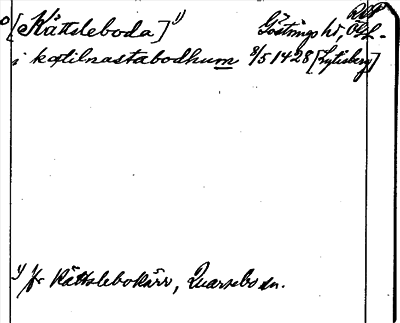 [Kättsleboda] 1) Göstrings hd, Ög.
i kætilnastabodhum 8/5 1428 [Lytisberg]
1) Jfr Kättslebokärr, Quarsebo sn.